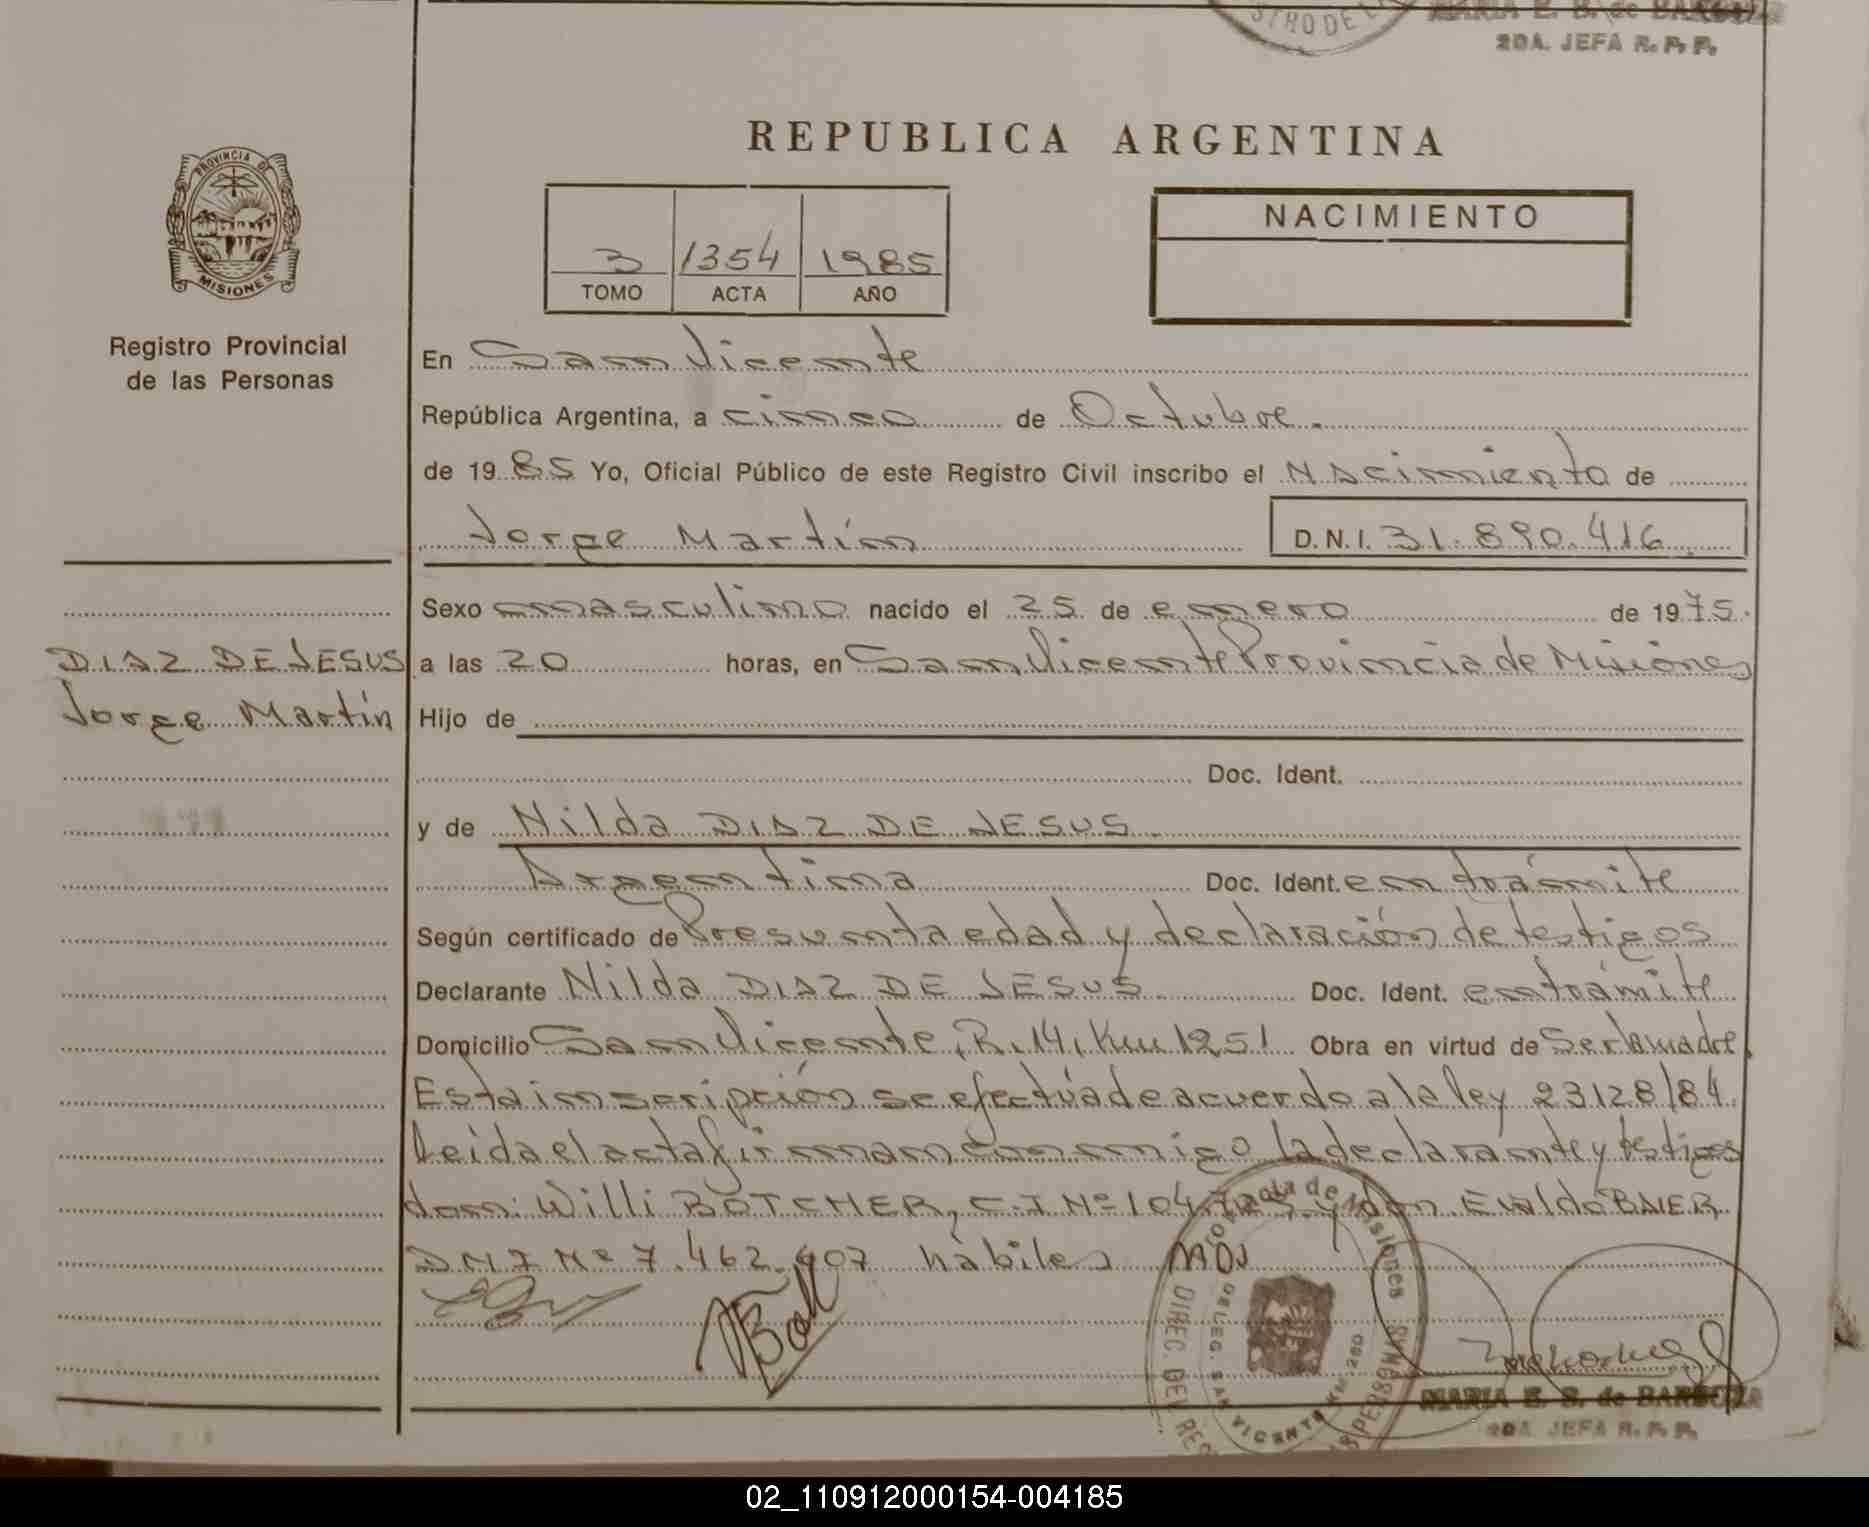 STRO DE L
MARIA E. B. de BARBOZA
2DA. JEFA R. P. P.
REPUBLICA ARGENTINA
PROVINCIA DE
MISIONES
3 1354 1985
TOMO ACTA AÑO
NACIMIENTO
Registro Provincial
de las Personas
En San Vicente
República Argentina, a cinco de Octubre.
de 1985 Yo, Oficial Público de este Registro Civil inscribo el NAcimiento de
Jorge Martín D.N.I. 31.890.416
Sexo masculino nacido el 25 de enero de 1975.
DIAZ DE JESUS
Jorge Martín
a las 20 horas, en San Vicente Provincia de Misiones
Hijo de
Doc. Ident.
y de Nilda DIAZ DE JESUS.
Argentina Doc. Ident. en trámite
Según certificado de Presunta edad y declaración de testigos
Declarante Nilda DIAZ DE JESUS Doc. Ident. en trámite
Domicilio San Vicente, R. 14, Km 1251 Obra en virtud de Ser la madre.
Esta inscripción se efectúa de acuerdo a la ley 23128/84.
Leída el acta firman conmigo la declarante y testigos
don: Willi BOTCHER, C.I Nº 104.725 y don Evaldo BAIER
DNI Nº 7.462.607 hábiles
Provincia de Misiones
DIREC. DEL REG
PERSONAS
DELEG. SAN VICENTE KM. 260
MARIA E. B. de BARBOZA
2DA. JEFA R. P. P.
02_110912000154-004185